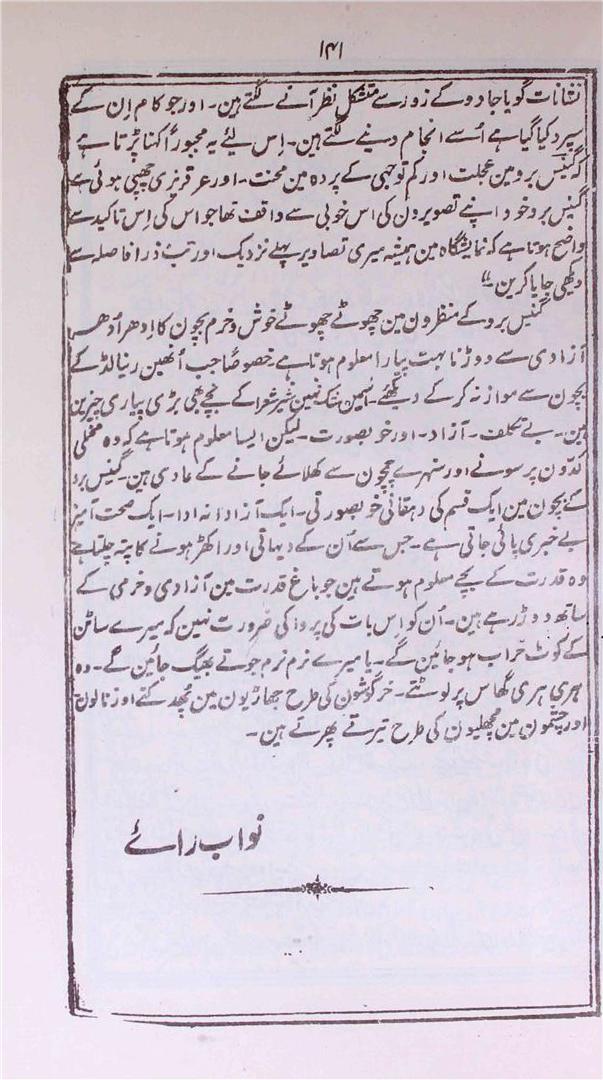 ۱۴۱
نشانات گویا جادو کے زور سے متشکل نظر آنے لگتے ہین۔ اور جو کام اِن کے
سپرد کیا گیا ہے اُسے انجام دینے لگتے ہین۔ اِس لئے یہ مجبوراً کہنا پڑتا ہے
کہ گینس برو مین عجلت اور کم توجہی کے پردہ مین محنت۔ اور عرقریزی چھپی ہوئی ہے
گینس برو خود اپنے تصویرون کی اس خوبی سے واقف تھا جو اس کی اِس تاکید سے
واضح ہوتا ہے کہ نمایشگاہ مین ہمیشہ میری تصاویر پہلے نزدیک اور تب ذرا فاصلے سے
دیکھی جایا کرین۔"
گینس برو کے منظرون مین چھوٹے چھوٹے خوش و خرم بچون کا اِدھر اُدھر
آزادی سے دوڑنا بہت پیارا معلوم ہوتا ہے۔ خصوصاً جب اُنھین رینالڈ کے
بچون سے موازنہ کر کے دیکھئے۔ اسمین شک نہین شہر کے بچے بھی بڑی پیاری چیزین
ہین۔ بے تکلف۔ آزاد۔ اور خوبصورت۔ لیکن ایسا معلوم ہوتا ہے کہ وہ مخملی
گدّون پر سونے اور سنہرے چمچون سے کھلائے جانے کے عادی ہین۔ گینس برو
کے بچون مین ایک قسم کی دہقانی خوبصورتی۔ ایک آزادانہ ادا۔ ایک صحت آمیز
بے خبری پائی جاتی ہے۔ جس سے اُن کے دیہاتی اور اکھڑ ہونے کا پتہ چلتا ہے
وہ قدرت کے بچے معلوم ہوتے ہین جو باغ قدرت مین آزادی و خرمی کے
ساتھ دوڑ رہے ہین۔ اُن کو اِس بات کی پروا کی ضرورت نہین کہ میرے ساٹن
کے کوٹ خراب ہو جائین گے۔ یا میرے نرم نرم جوتے بھیگ جائین گے۔ وہ
ہری ہری گھاس پر لوٹتے۔ خرگوشون کی طرح جھاڑیون مین پھدکتے اور نالون
اور چشمون مین مچھلیون کی طرح تیرتے پھرتے ہین۔
نواب رائے